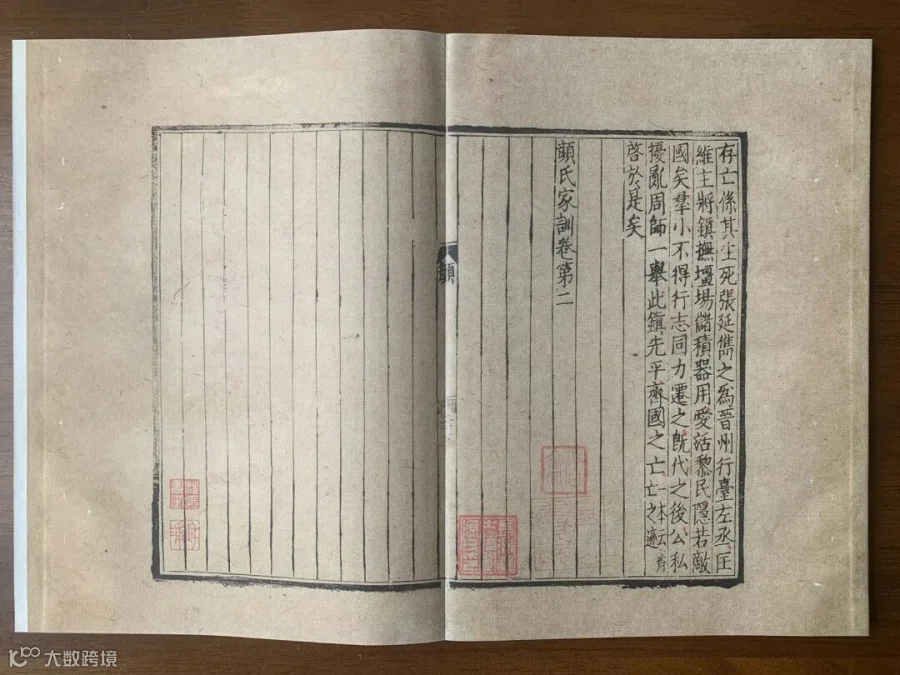 存亡係其生死張延雋之為晉州行臺左丞匡
維主將鎮撫壇場儲積器用愛活黎民隱若敵
國矣羣小不得行志同力遷之旣代之後公私
擾亂周師一舉此鎮先平齊國之亡一本云齊亡之迹
啓於是矣
顏氏家訓卷第二
顏
大数跨境